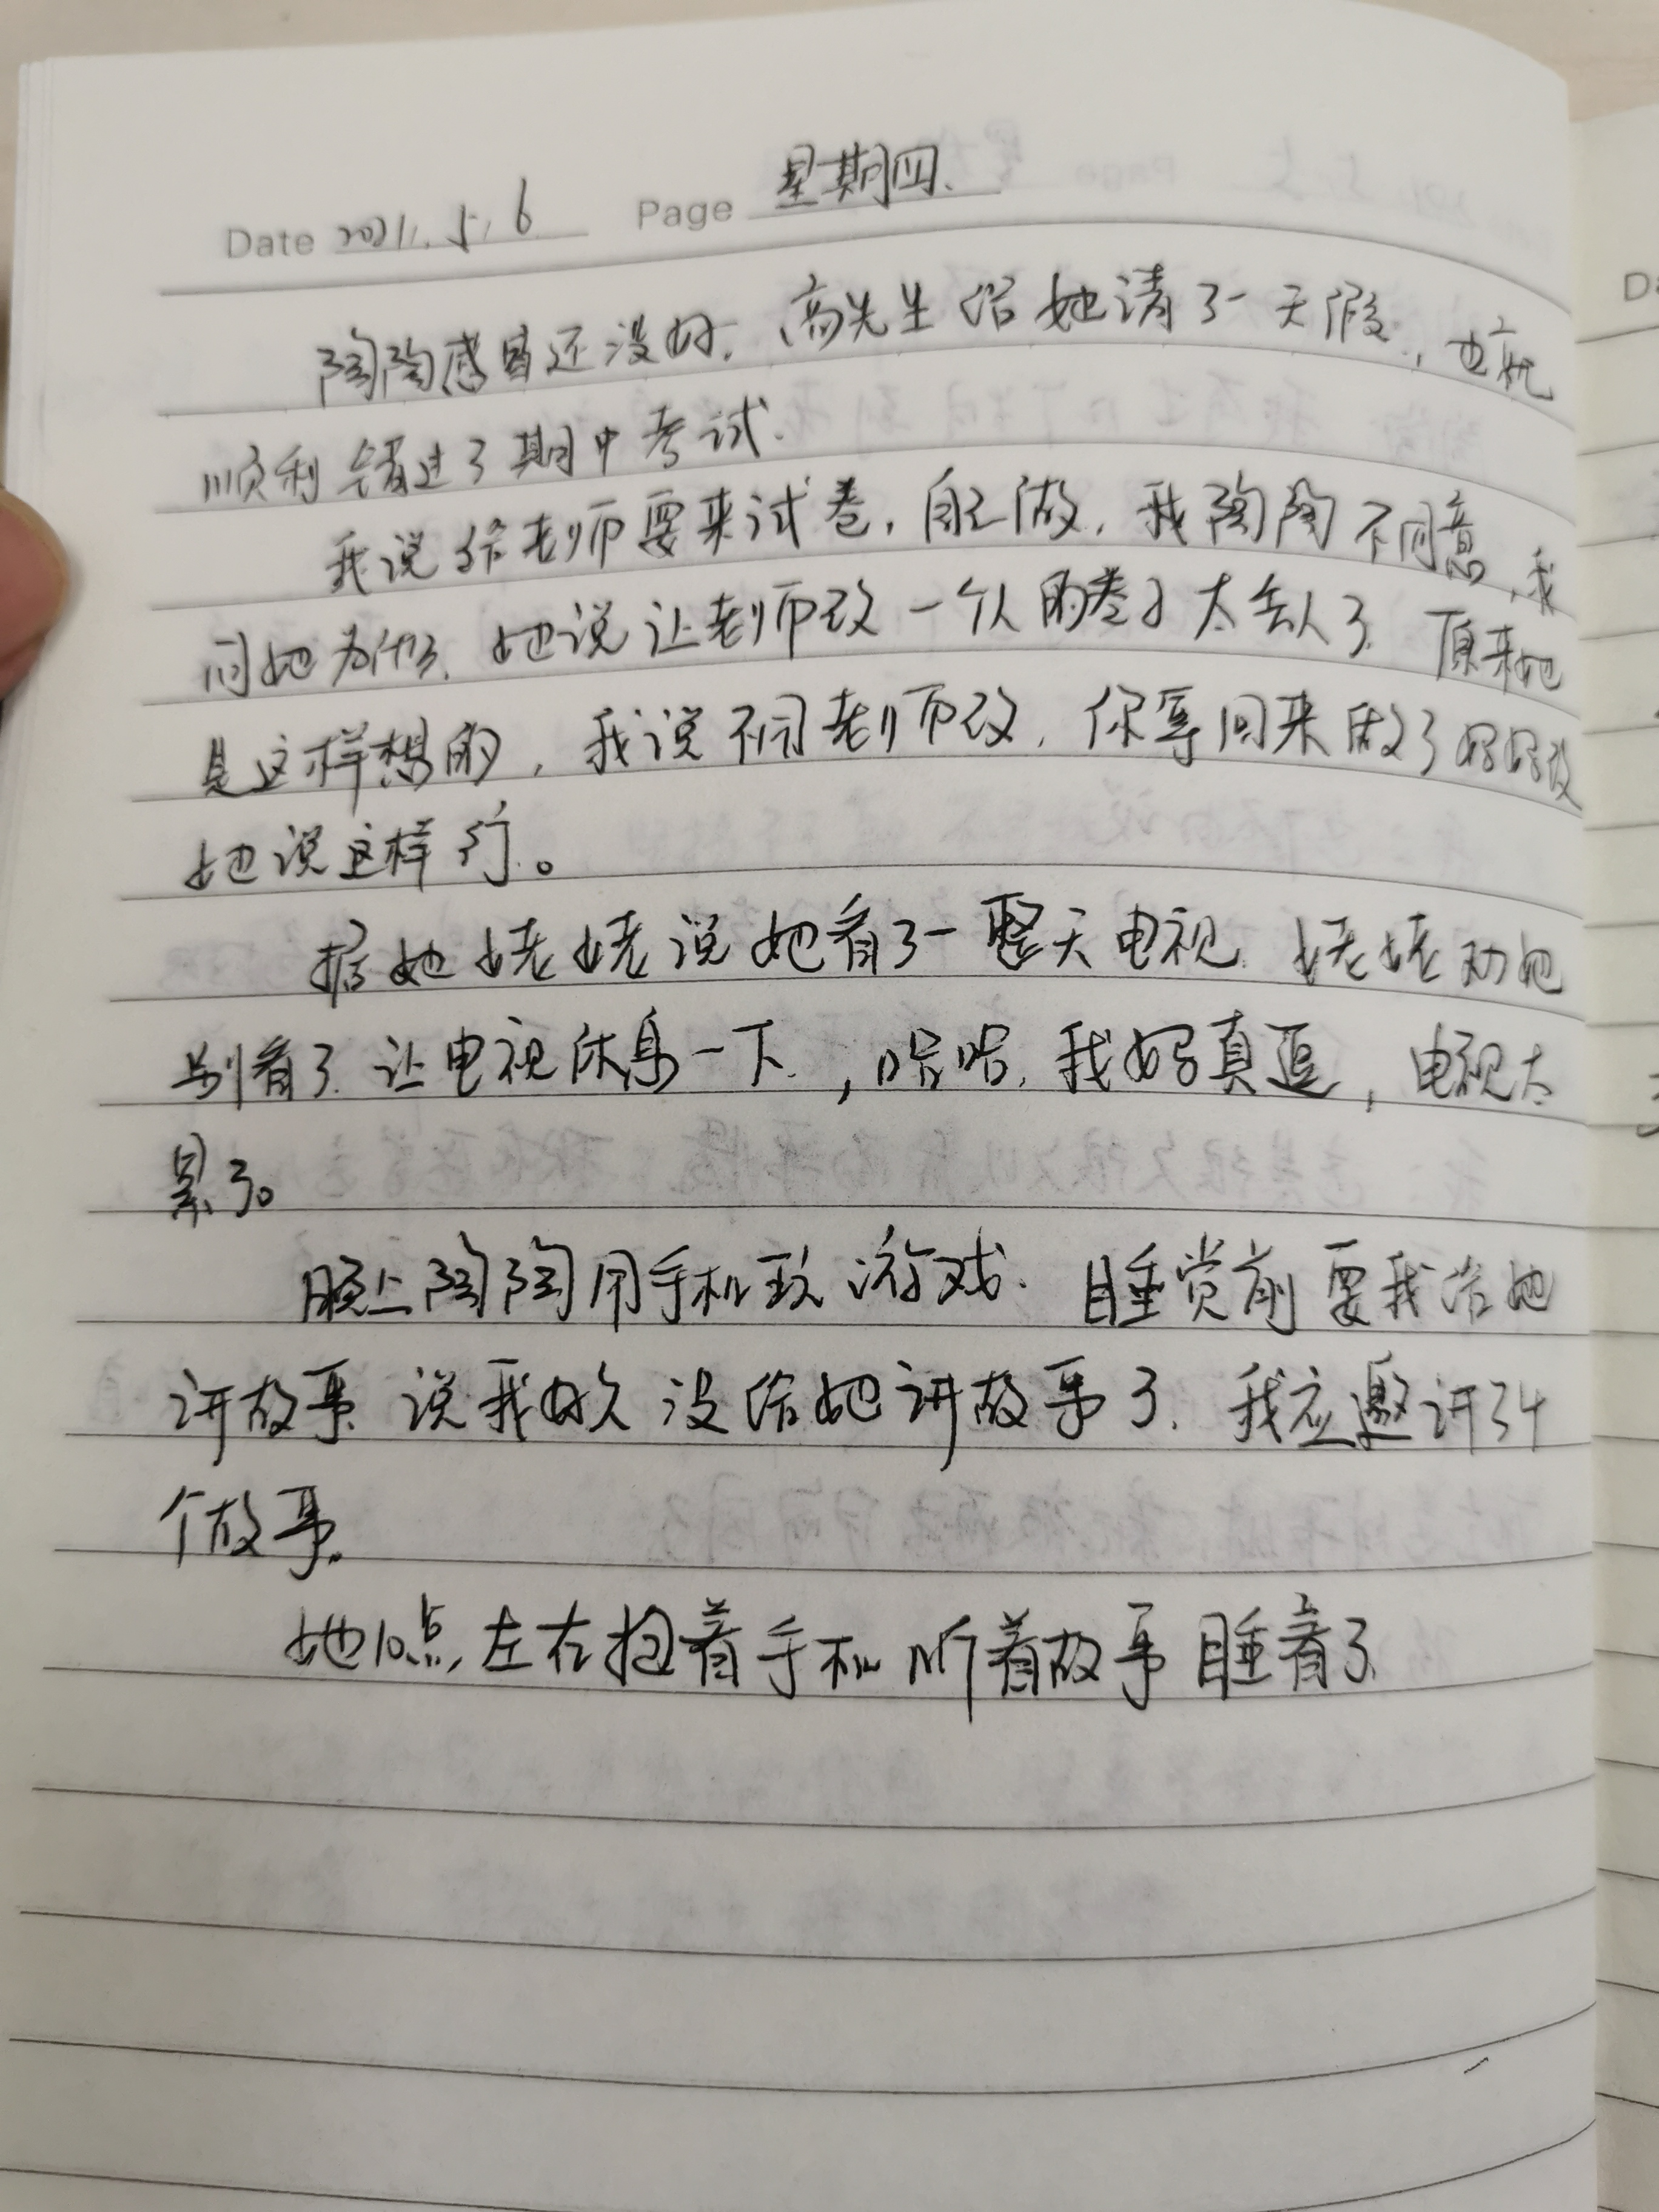 Date 2021.5.6 Page 星期四.
陶陶感冒还没好.高先生给她请了一天假,也就
顺利错过了期中考试.
我说给老师要来试卷,自己做,我陶陶不同意,我
问她为什么.她说让老师改一个人的卷子太丢人了.原来她
是这样想的,我说不问老师改,你等回来做了妈妈改
她说这样行。
据她姥姥说她看了一整天电视.姥姥劝她
别看了.让电视休息一下.,哈哈.我妈真逗,电视太
累了。
晚上陶陶用手机玩游戏.睡觉前要我给她
讲故事.说我好久没给她讲故事了.我应邀讲了4
个故事.
她10点左右抱着手机听着故事睡着了.